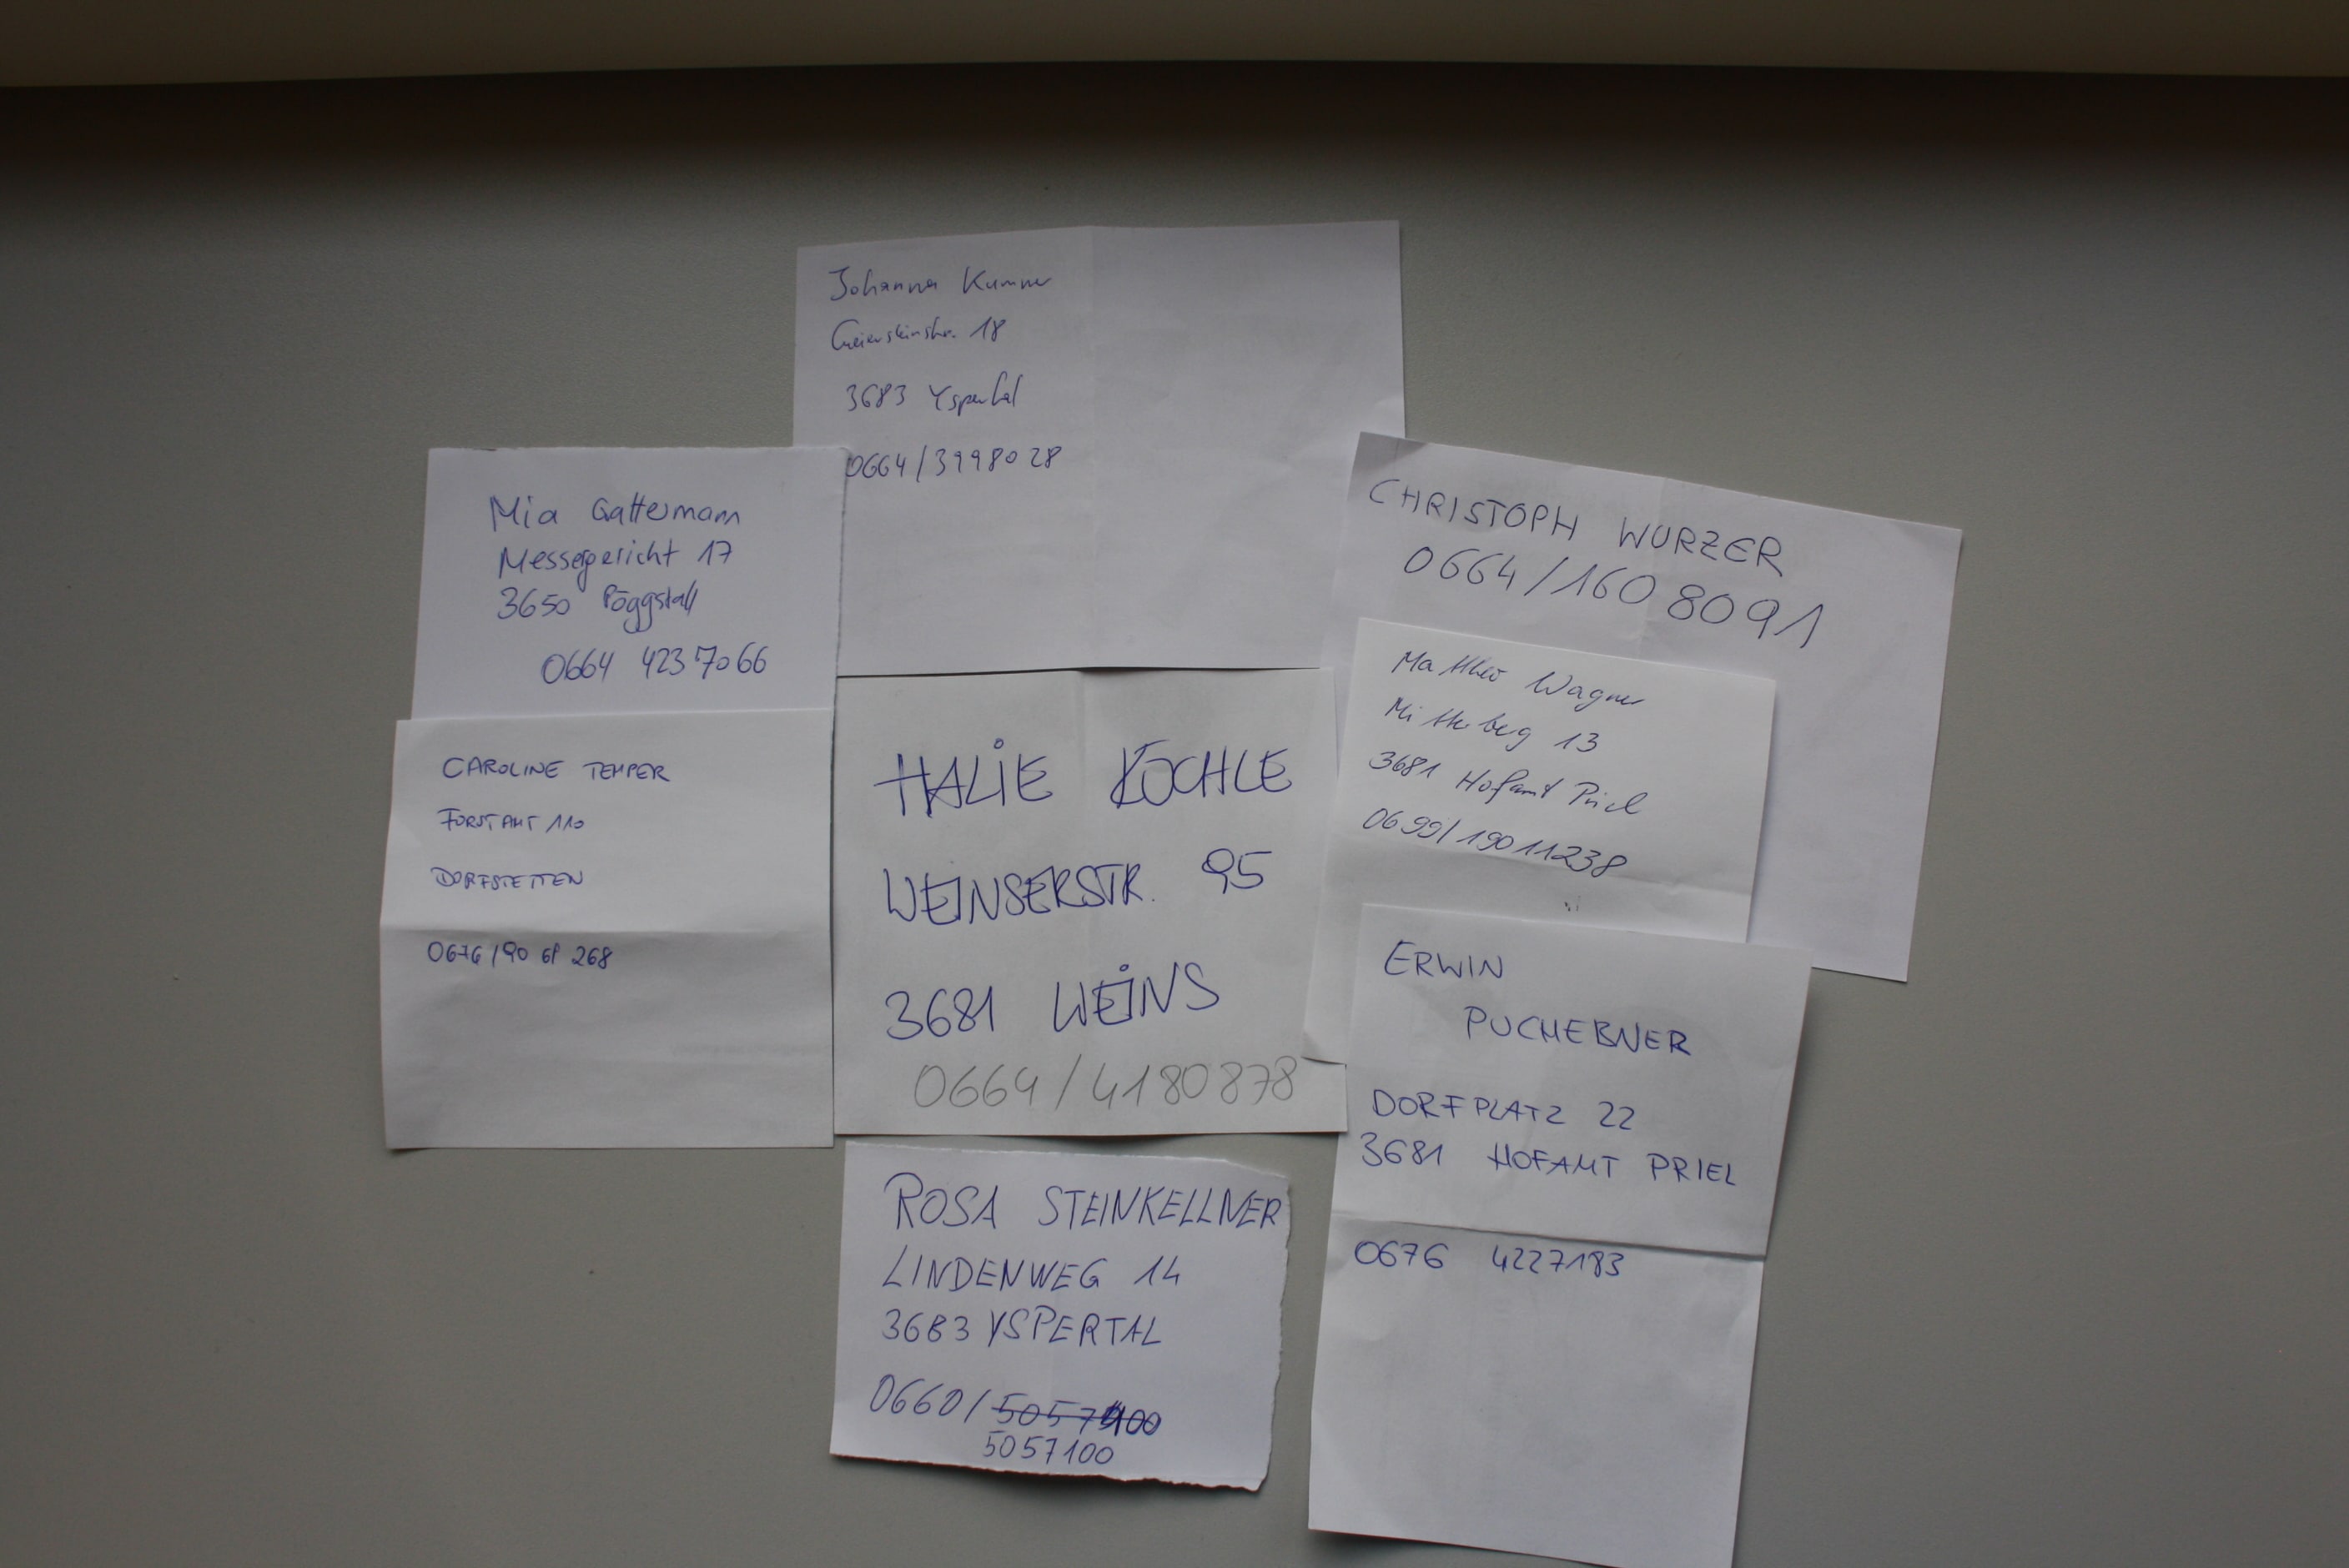 Johanna Kummer
Geiersteinstr. 18
3683 Yspertal
0664/3998028
Mia Gattermann
Messergericht 17
3650 Pöggstall
0664 4237066
CHRISTOPH WURZER
0664/160 8091
CAROLINE TEMPER
FORSTAMT 110
DORFSTETTEN
0676/90 61 268
HALIE KÖCHLE
WEINSERSTR. 95
3681 WEINS
0664/4180878
Wagner
Mitterberg 13
3681 Hofamt Priel
0699/19011238
ERWIN
PUCHEBNER
DORFPLATZ 22
3681 HOFAMT PRIEL
0676 4227183
ROSA STEINKELLNER
LINDENWEG 14
3683 YSPERTAL
0660/
5057100